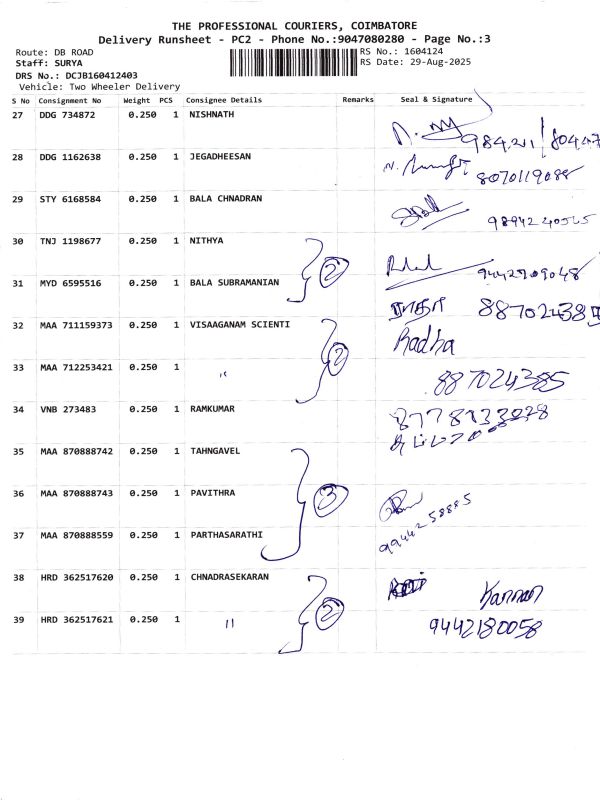 THE PROFESSIONAL COURIERS, COIMBATORE
Delivery Runsheet - PC2 - Phone No.:9047080280 - Page No.:3
Route: DB ROAD
Staff: SURYA
DRS No.: DCJB160412403
Vehicle: Two Wheeler Delivery
RS No.: 1604124
RS Date: 29-Aug-2025
S No Consignment No Weight PCS Consignee Details Remarks Seal & Signature
27 DDG 734872 0.250 1 NISHNATH
28 DDG 1162638 0.250 1 JEGADHEESAN
8070119088
29 STY 6168584 0.250 1 BALA CHNADRAN
30 TNJ 1198677 0.250 1 NITHYA
2
31 MYD 6595516 0.250 1 BALA SUBRAMANIAN
ராதா
32 MAA 711159373 0.250 1 VISAAGANAM SCIENTI
Radha
2
33 MAA 712253421 0.250 1 "
887024385
34 VNB 273483 0.250 1 RAMKUMAR
35 MAA 870888742 0.250 1 TAHNGAVEL
36 MAA 870888743 0.250 1 PAVITHRA
3
9944258885
37 MAA 870888559 0.250 1 PARTHASARATHI
38 HRD 362517620 0.250 1 CHNADRASEKARAN
Kannan
2
39 HRD 362517621 0.250 1 "
9442180058